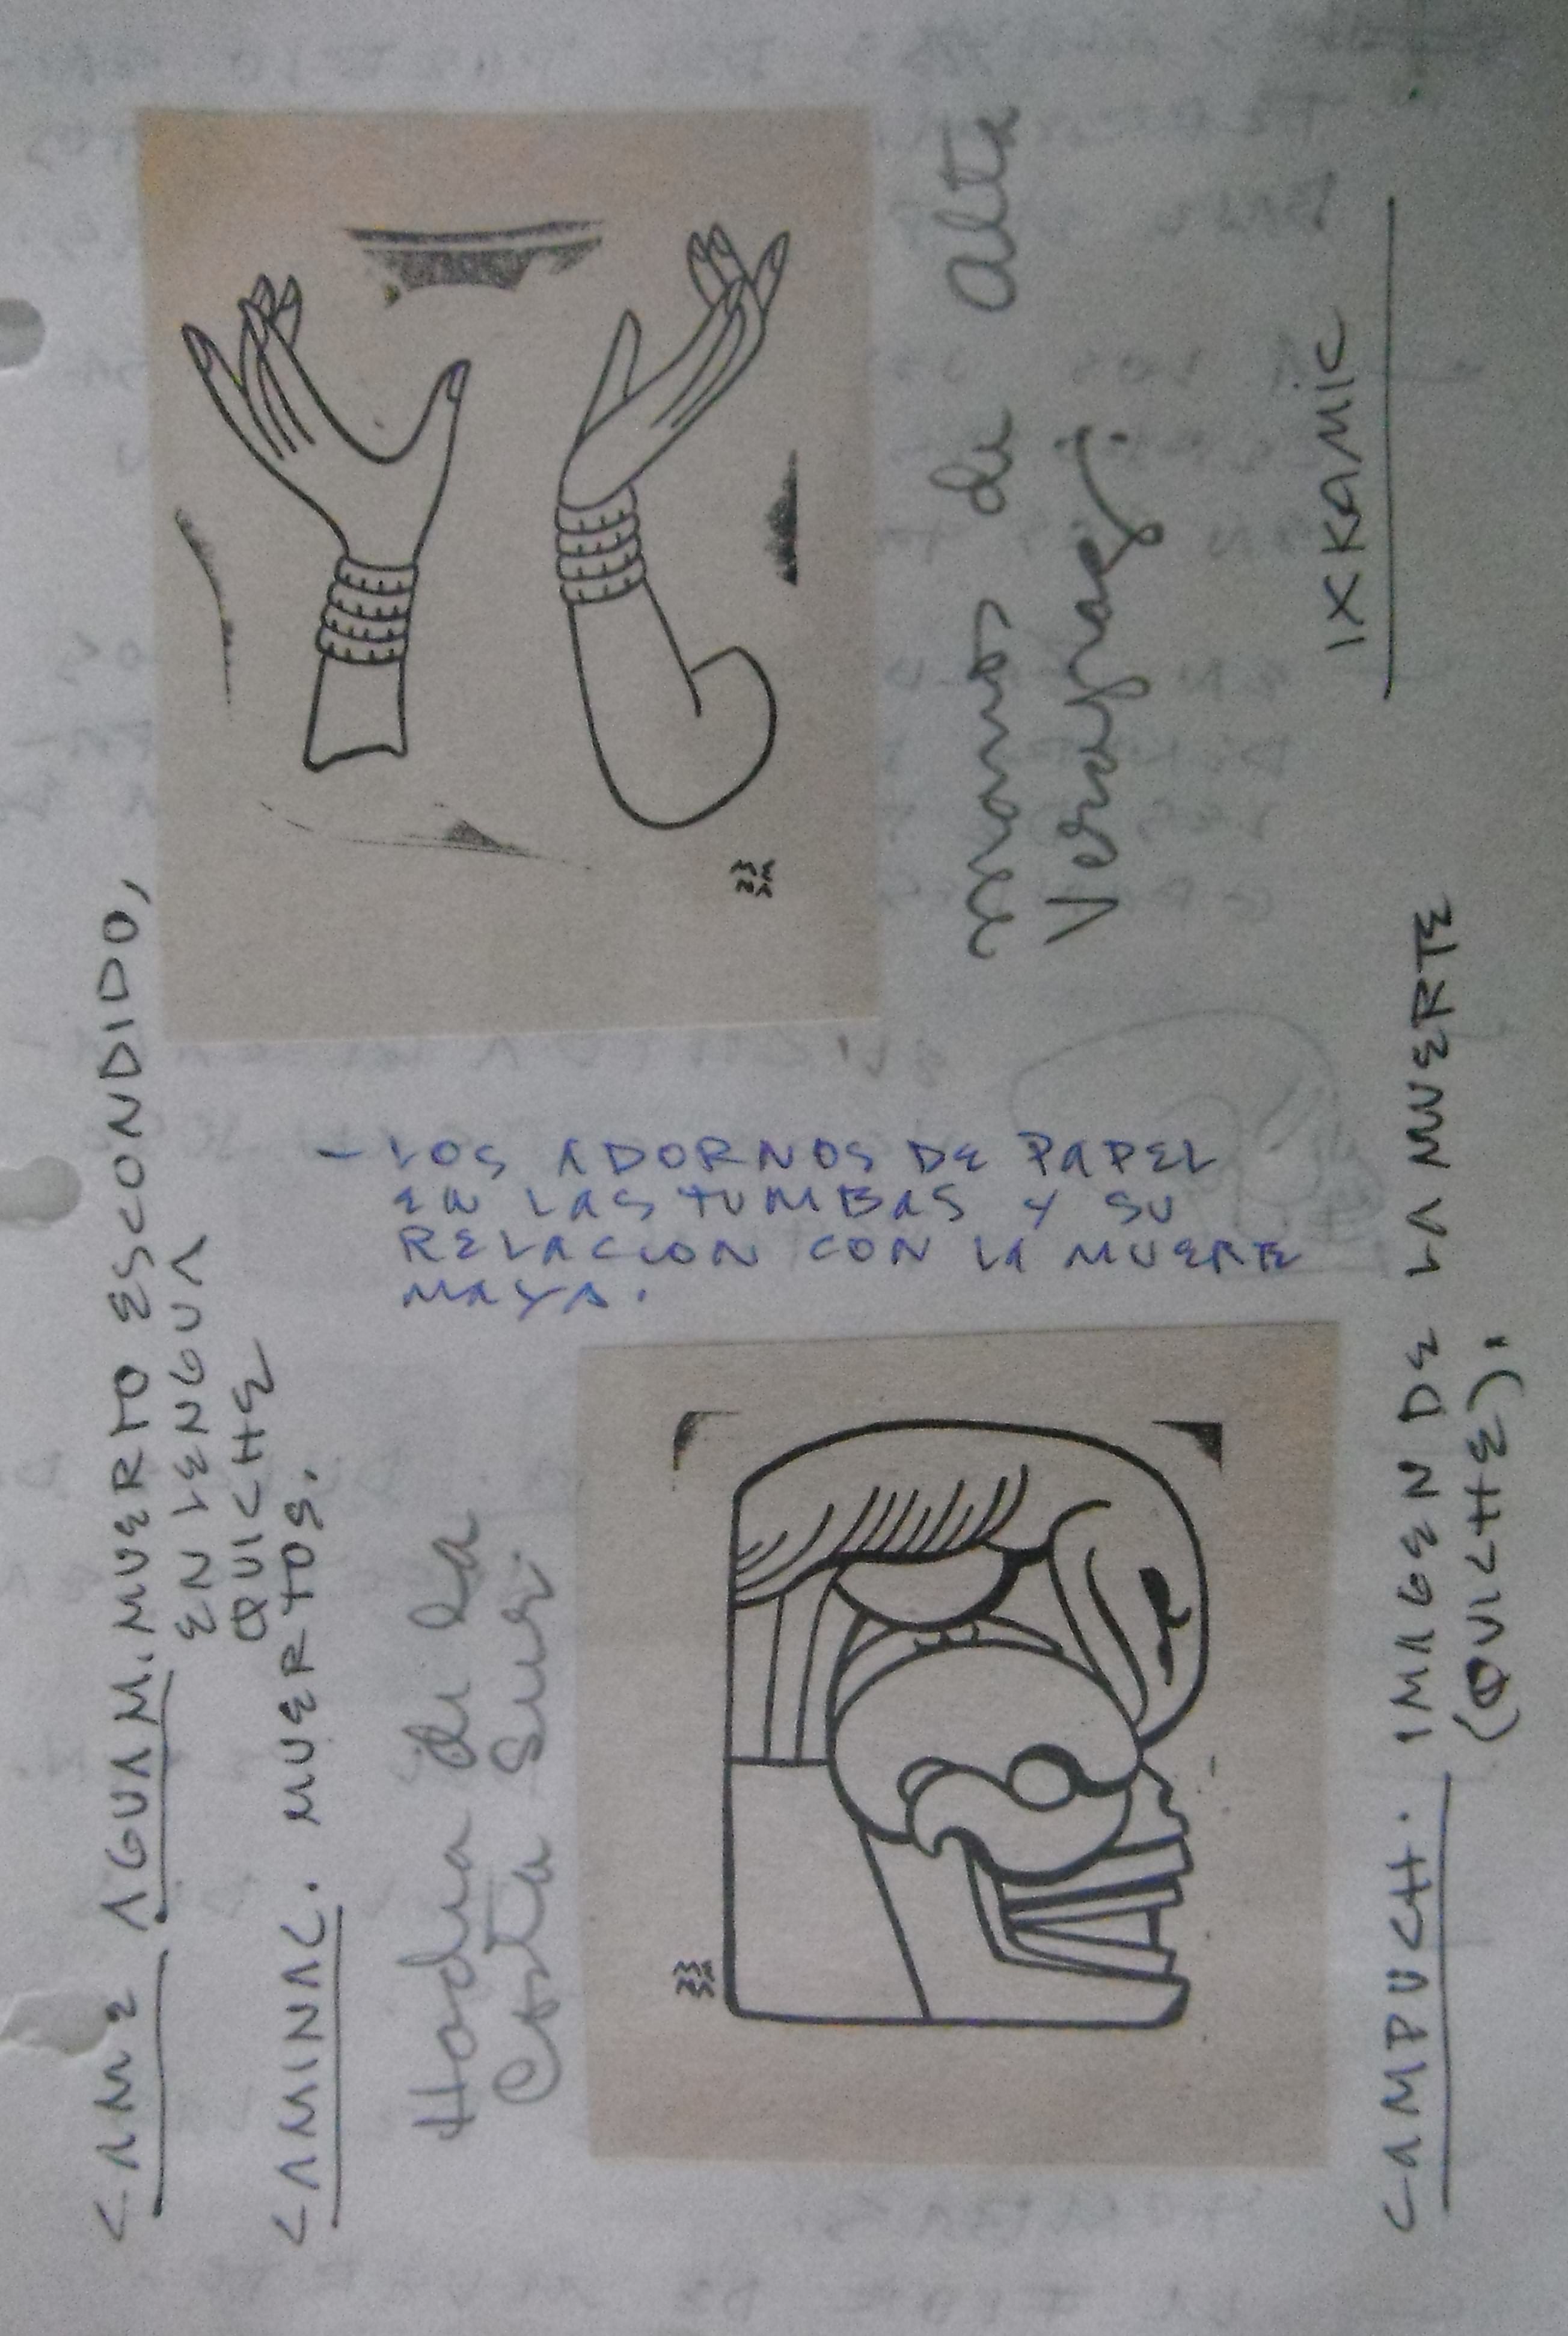 CAME AGUAM. MUERTO ESCONDIDO,
EN LENGUA
QUICHE
CAMINAL. MUERTOS.
Hacha de la
Costa Sur.
- LOS ADORNOS DE PAPEL
EN LAS TUMBAS Y SU
RELACION CON LA MUERTE
MAYA.
manos de alta
Verapaz.
IXKAMIC
CAMPUCH. IMAGEN DE LA MUERTE
(QUICHE).